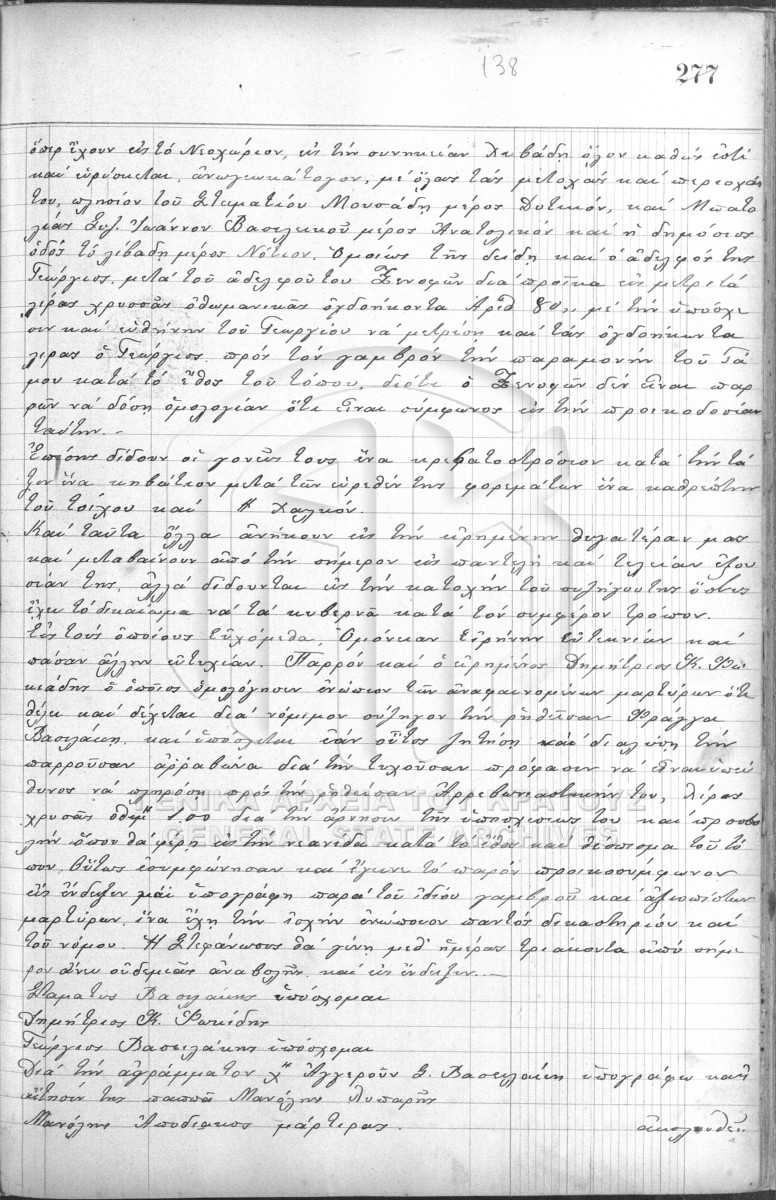 138
277
ὅπερ ἔχουν εἰς τό Νεοχώριον, εἰς τήν συνηκείαν Χαβάδη ὅλον καθώς ἐστί
καί εὑρίσκεται, ἀνωγεωκάτογον, μέ ὅλας τάς μετοχάς καί περιοχάς
του, πλησίον τοῦ Σταματίου Μουσάδη μέρος Δυτικόν, καί Μπατο
λιάς Συζ. Ἰωάννου Βασιλικοῦ μέρος Ἀνατολικόν καί ἡ δημόσιος
ὁδός τό λιβάδη μέρος Νότιον. Ὁμοίως τῆς δείδη καί ὁ ἀδελφός της
Γεώργιος, μετά τοῦ ἀδελφοῦ του Ξενοφῶν διά προῖκα εἰς μετριτά
λίρας χρυσσᾶς ὀθωμανικάς ὀγδοήκοντα Ἀριθ 80,, μέ τήν ὑπόσχε
σιν καί εὐθήνην τοῦ Γεωργίου νά μετρέση καί τάς ὀγδοήκωντα
λιρας ὁ Γεώργιος, πρός τόν γαμβρόν τήν παραμονήν τοῦ Γά
μου κατά τό ἔθος τοῦ τόπου, διότι ὁ Ξενοφῶν δέν εἶναι παρ
ρῶν νά δόση ὁμολογίαν ὅτι εἶναι σύμφωνος εἰς τήν προικοδοσίαν
ταύτην. –
Ἐπίσης δίδουν οἱ γονεῖς τους ἕνα κρεβατοστρόσιον κατά τήν τά
ξιν ἕνα κηβώτιον μετά τῶν εὑρεθέν της φορεμάτων ἕνα καθρεύτην
τοῦ τοίχου καί Χαλκόν.
Καί ταῦτα ὅλλα ἀνήκουν εἰς τήν εἰρημένην θυγατέραν μας
καί μεταβαίνουν ἀπό τήν σήμερον εἰς παντελῆ καί τελείαν ἐξου
σίαν της, ἀλλά δίδουνται εἰς τήν κατοχήν τοῦ συζήγου της ὅστις
ἔχει τό δικαίωμα νά τά κυβερνᾶ κατά τόν συμφέρον τρόπον.
Εἰς τούς ὁποίους Εὐχόμεθα, Ὁμόνοιαν Εἰρήνην εὐτεκνίαν καί
πᾶσαν ἄλλην εὐτυχίαν. Παρρόν καί ὁ εἰρημένος Δημήτριος Κ. Φω
κιάδης ὁ ὁποῖος ὁμολόγησεν ἐνώπιον τῶν ἀναφαινομένων μαρτύρων ὅτι
θέλει καί δέχεται διά νόμιμον σύζηγον τήν ρηθεῖσαν Φράγγα
Βασιλάκη, καί ὑπόσχεται ἐάν οὗτος ζητήση νά διαλύση τήν
παρροῦσαν ἀρραβῶνα διά τήν τυχοῦσαν πρόφασιν νά εἶναι ὑπεύ
θυνος νά πληρόση πρός τήν ρηθεῖσαν Ἀρρεβωνιαστικήν του, λίρας
χρυσᾶς ὀθωμ. 100 δια την ἄρνησιν τῆς ὑποσχέσεως του καί προσβο
λήν ὁπου θά φέρη εἰς τήν νεανίδα κατά τό ἔθος καί θέσπισμα τοῦ τό
που. Οὕτως ἐσυμφώνησαν καί ἔγινε τό παρόν προικοσύμφωνον
εἰς ἔνδειξιν καί ὑπογράφη παρά τοῦ ἰδίου γαμβροῦ καί ἀξιοπίστων
μαρτύρων, ἵνα ἔχη τήν ἰσχήν ἐνώπιον παντός δικαστηρίου καί
τοῦ νόμου. Ἡ Στεφάνωσις θά γίνη μεθ᾽ ἡμέρας τριάκοντα ἀπό σήμε
ρον ἄνευ οὐδεμιᾶς ἀναβολῆς, καί εἰς ἔνδειξιν. –
Σταματις Βασιλάκης ὑπόσχομαι
Δημήτριος Κ. Φωκίδης
Γεώργιος Βασειλάκης ὑπόσχομαι
Διά τήν ἀγράμματον χ" Ἀγγεροῦν Σ. Βασειλάκη ὑπογράφω κατ
αἴτησίν της παππᾶ Μανόλης Λυπαρῆς
Μανόλης Ἀποδιακος μάρτιρας.
ἀκολουθεῖ
ΓΕΝΙΚΑ ΑΡΧΕΙΑ ΤΟΥ ΚΡΑΤΟΥΣ
GENERAL STATE ARCHIVES